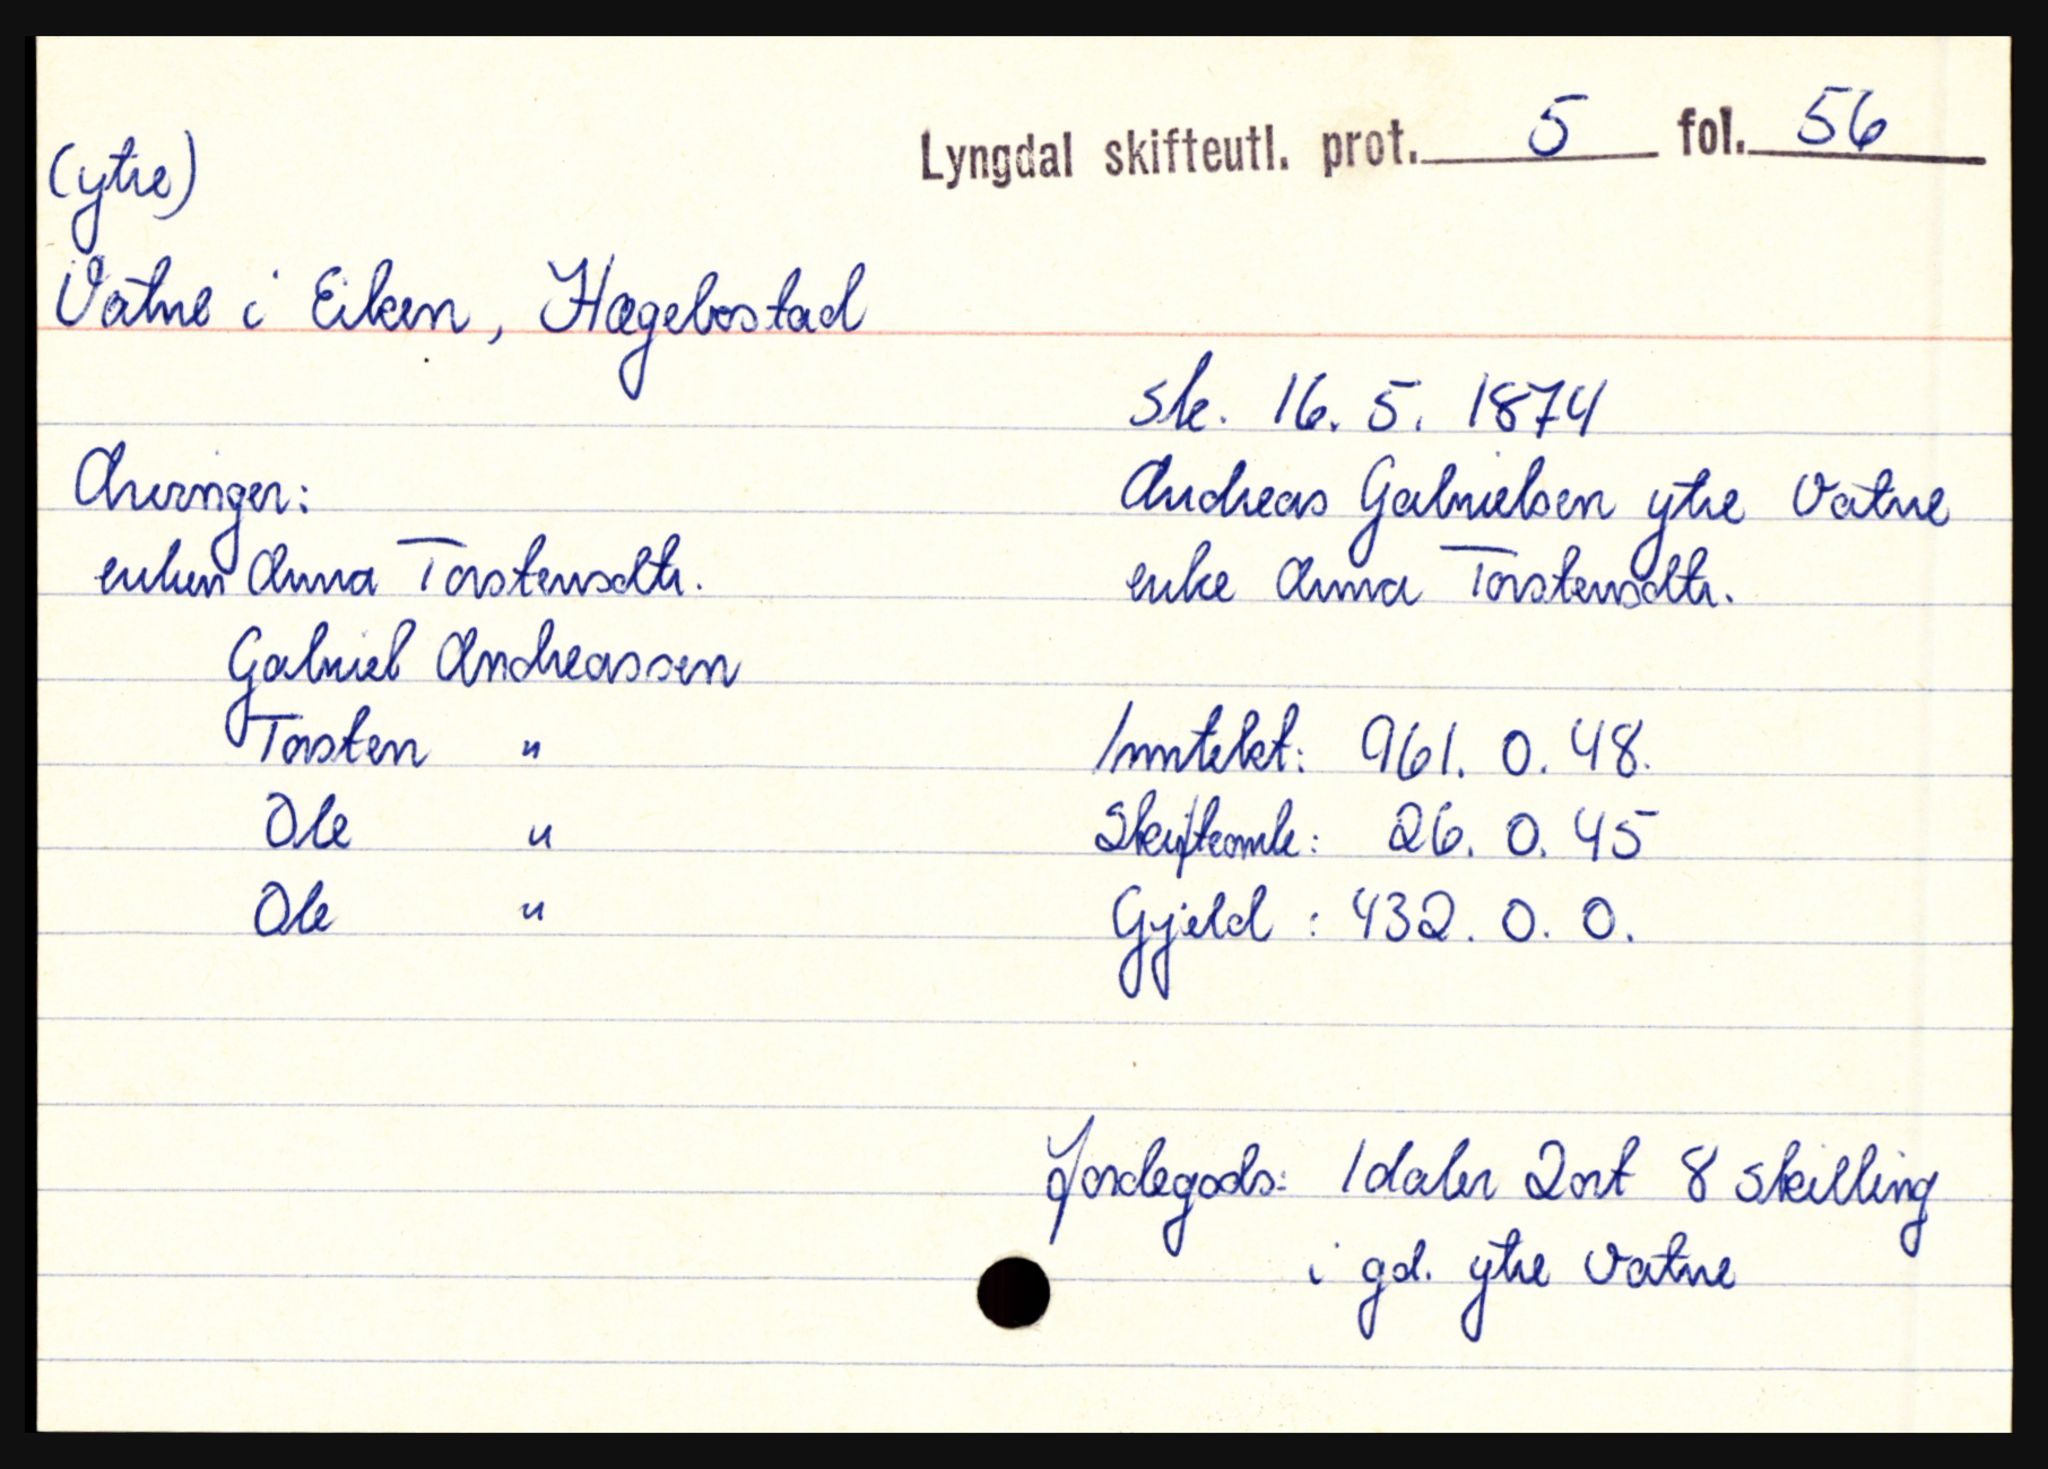 Lyngdal skifteutl. prot. 5 fol. 56
(ytre)
Vatne i Eiken, Hægebostad
sk. 16. 5. 1874
Andreas Gabrielsen ytre Vatne
enke Anna Torstensdtr.
Arvinger:
enken Anna Torstensdtr.
Gabriel Andreassen
Torsten "
Ole "
Ole "
Inntekt: 961. 0. 48.
Skifteomk: 26. 0. 45
Gjeld : 432. 0. 0.
Jordegods: 1 daler 2 ort 8 skilling
i gd. ytre Vatne